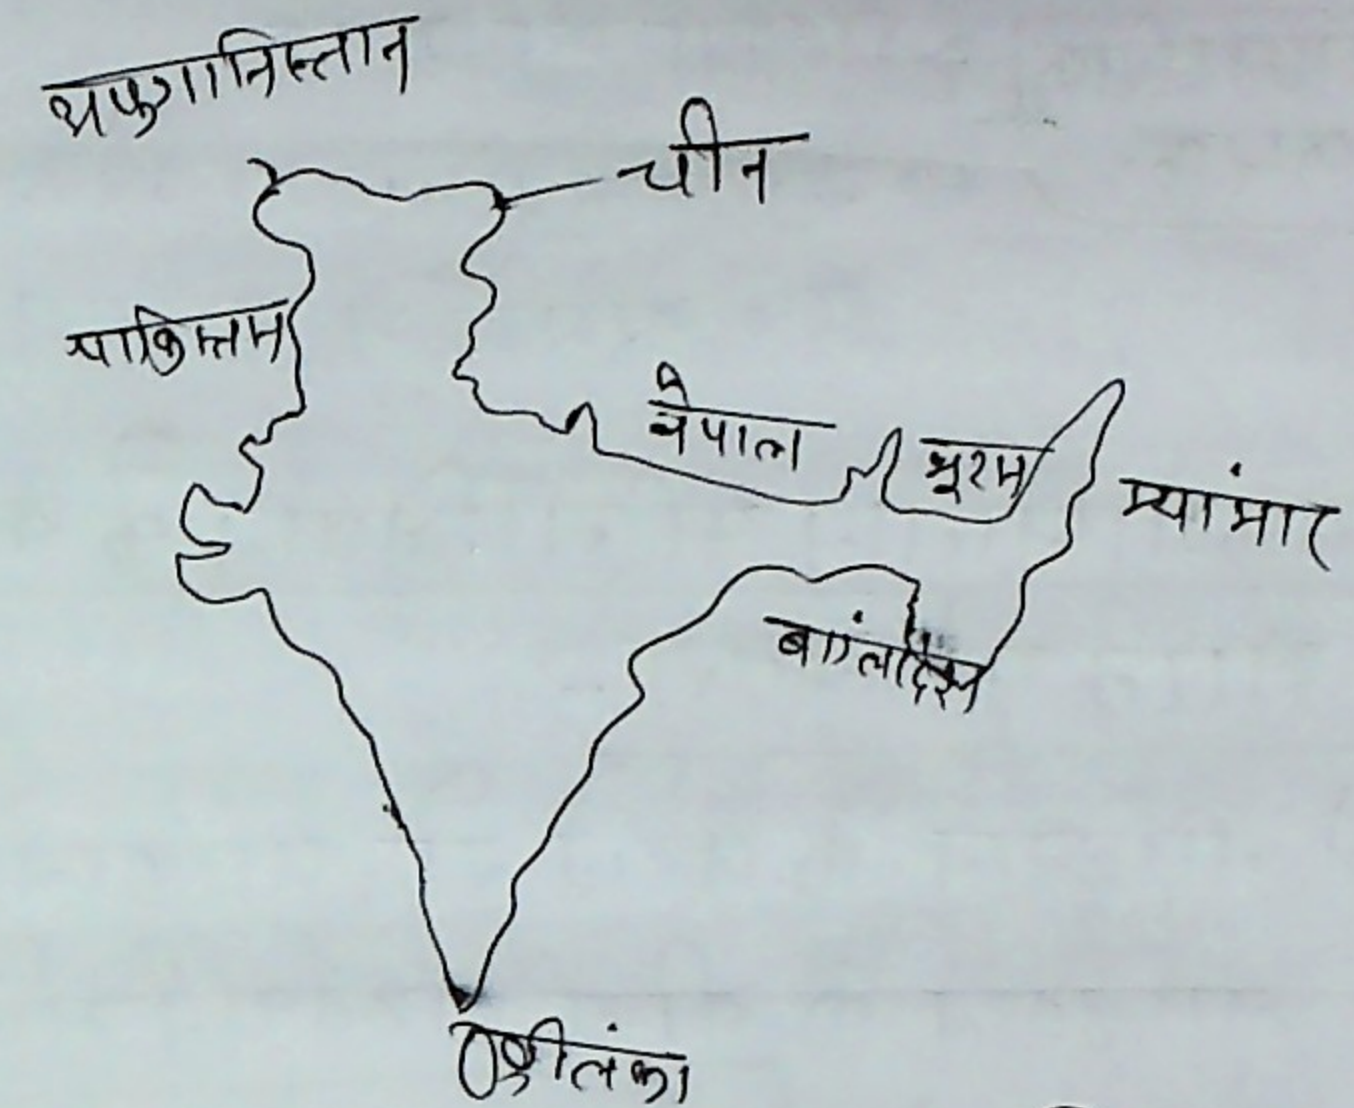 अफगानिस्तान
चीन
पाकिस्तान
नेपाल
भूटान
म्यांमार
बांग्लादेश
श्रीलंका